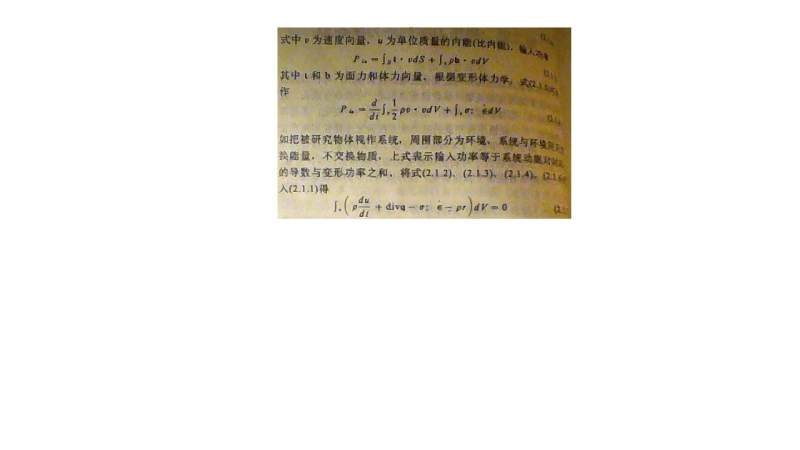 式中 v 为速度向量，u 为单位质量的内能(比内能)，输入功率
P_in = ∫_β t · vdS + ∫_v ρb · vdV
其中 t 和 b 为面力和体力向量，根据变形体力学，式(2.1.5)
作
P_in = d/dt ∫_v 1/2 ρv · vdV + ∫_v σ: ε̇dV
如把被研究物体视作系统，周围部分为环境，系统与环境
换能量，不交换物质，上式表示输入功率等于系统动能对
的导数与变形功率之和，将式(2.1.2)、(2.1.3)、(2.1.4)、(2.1.6)
入(2.1.1)得
∫_v (ρ du/dt + divq − σ: ε̇ − ρr) dV = 0 (2.1